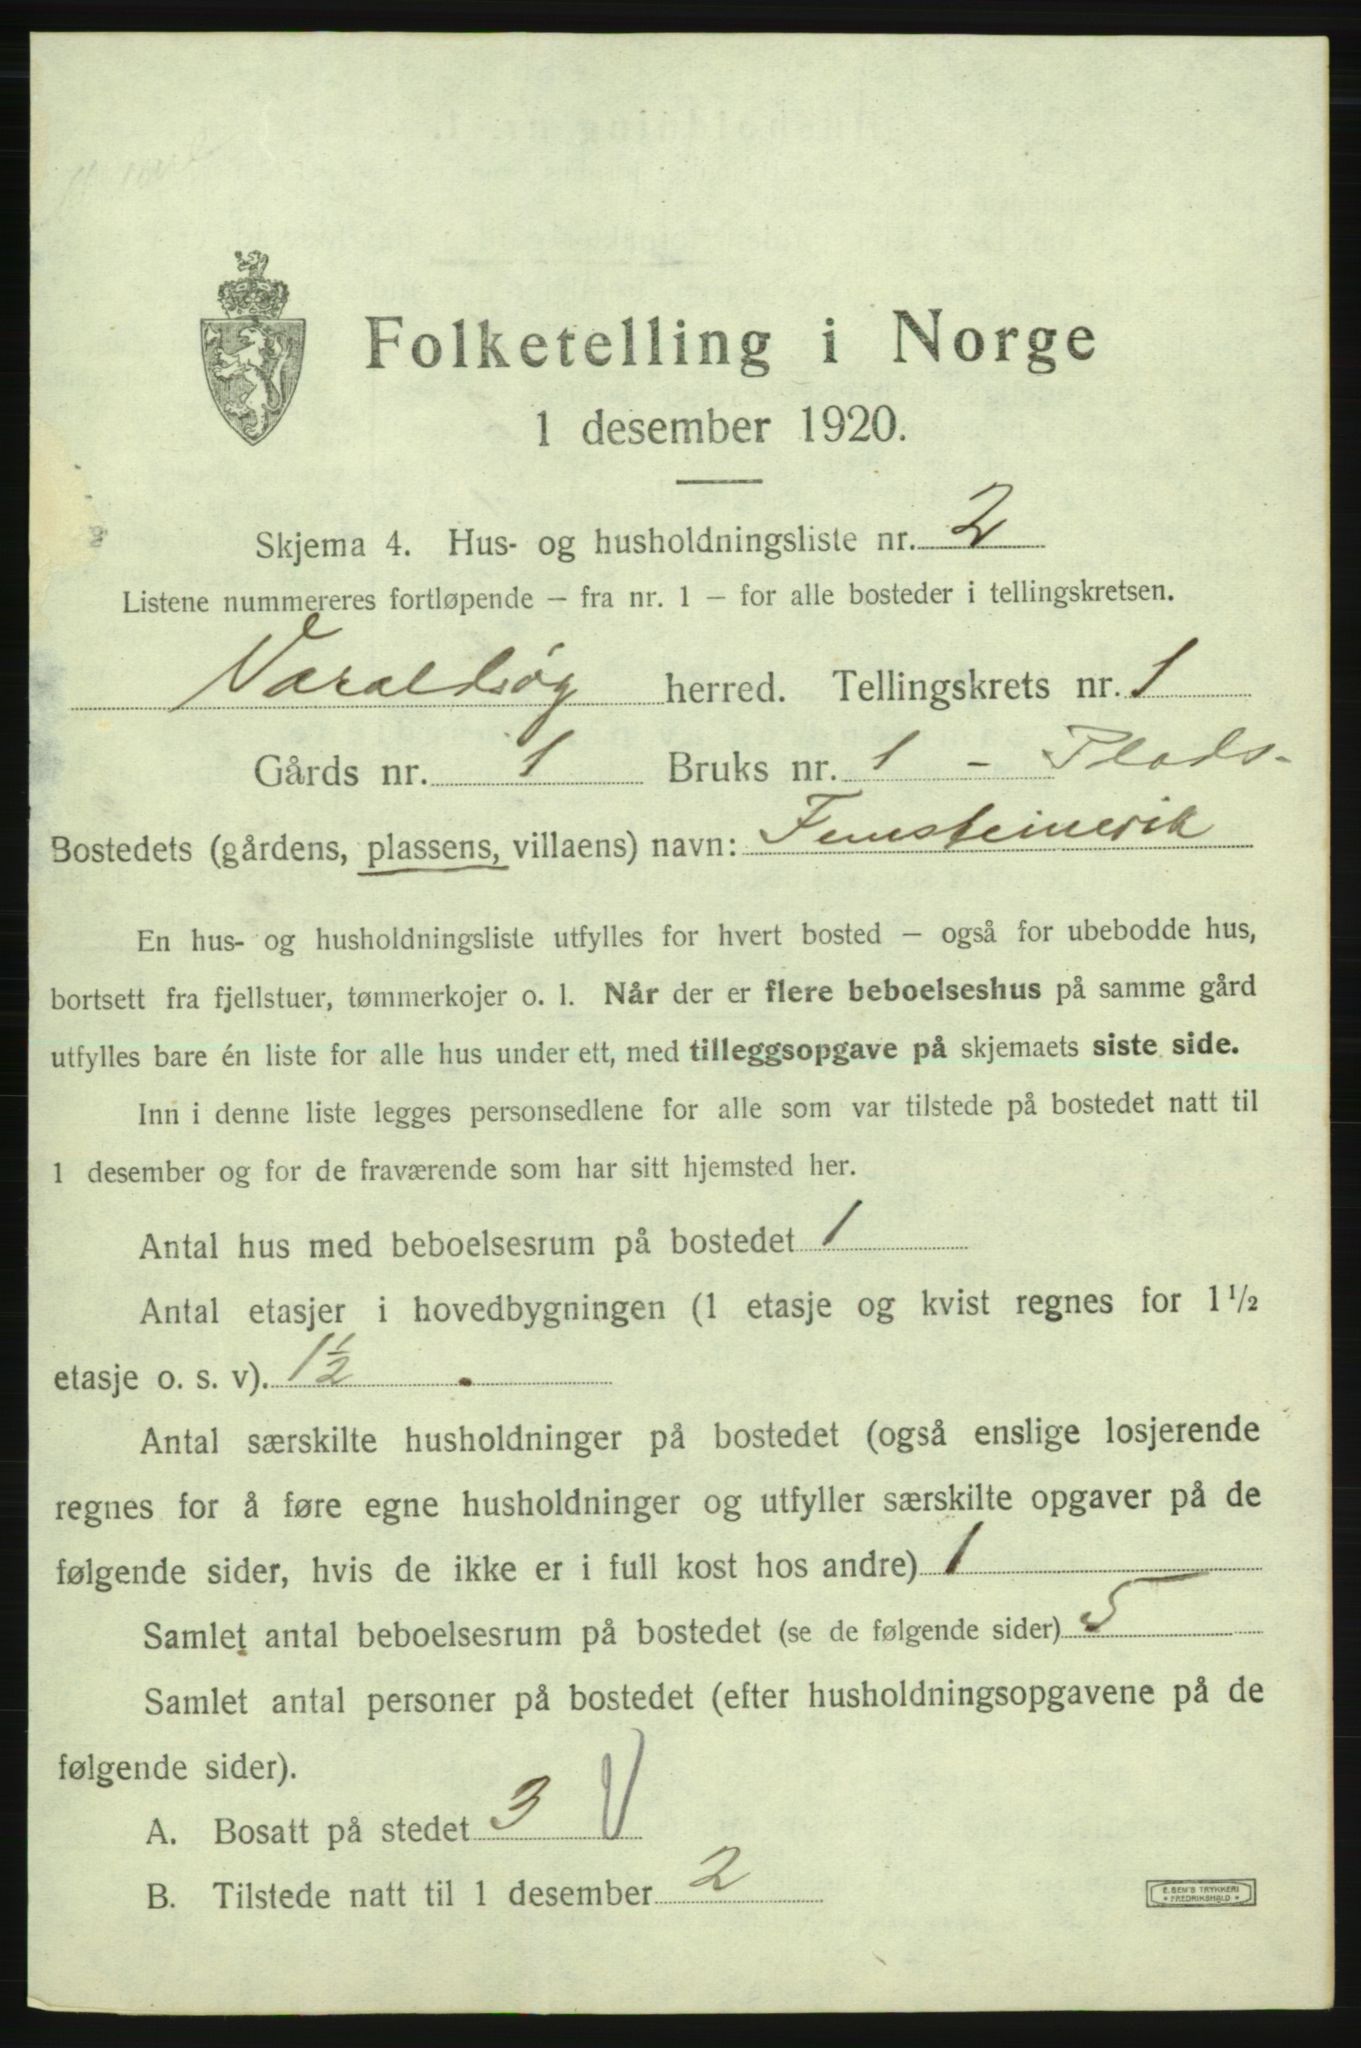 Folketelling i Norge
1 desember 1920.
Skjema 4. Hus- og husholdningsliste nr. 2
Listene nummereres fortløpende – fra nr. 1 – for alle bosteder i tellingskretsen.
Varaldsøy herred. Tellingskrets nr. 1
Gårds nr. 1 Bruks nr. 1 - Plads-
Bostedets (gårdens, plassens, villaens) navn: Femsteinevik
En hus- og husholdningsliste utfylles for hvert bosted – også for ubebodde hus,
bortsett fra fjellstuer, tømmerkojer o. l. Når der er flere beboelseshus på samme gård
utfylles bare én liste for alle hus under ett, med tilleggsopgave på skjemaets siste side.
Inn i denne liste legges personsedlene for alle som var tilstede på bostedet natt til
1 desember og for de fraværende som har sitt hjemsted her.
Antal hus med beboelsesrum på bostedet 1
Antal etasjer i hovedbygningen (1 etasje og kvist regnes for 1 1/2
etasje o. s. v). 1 1/2
Antal særskilte husholdninger på bostedet (også enslige losjerende
regnes for å føre egne husholdninger og utfyller særskilte opgaver på de
følgende sider, hvis de ikke er i full kost hos andre) 1
Samlet antal beboelsesrum på bostedet (se de følgende sider) 5
Samlet antal personer på bostedet (efter husholdningsopgavene på de
følgende sider).
A. Bosatt på stedet 3 V
B. Tilstede natt til 1 desember 2
E. SEM'S TRYKKERI
* FREDRIKSHALD *